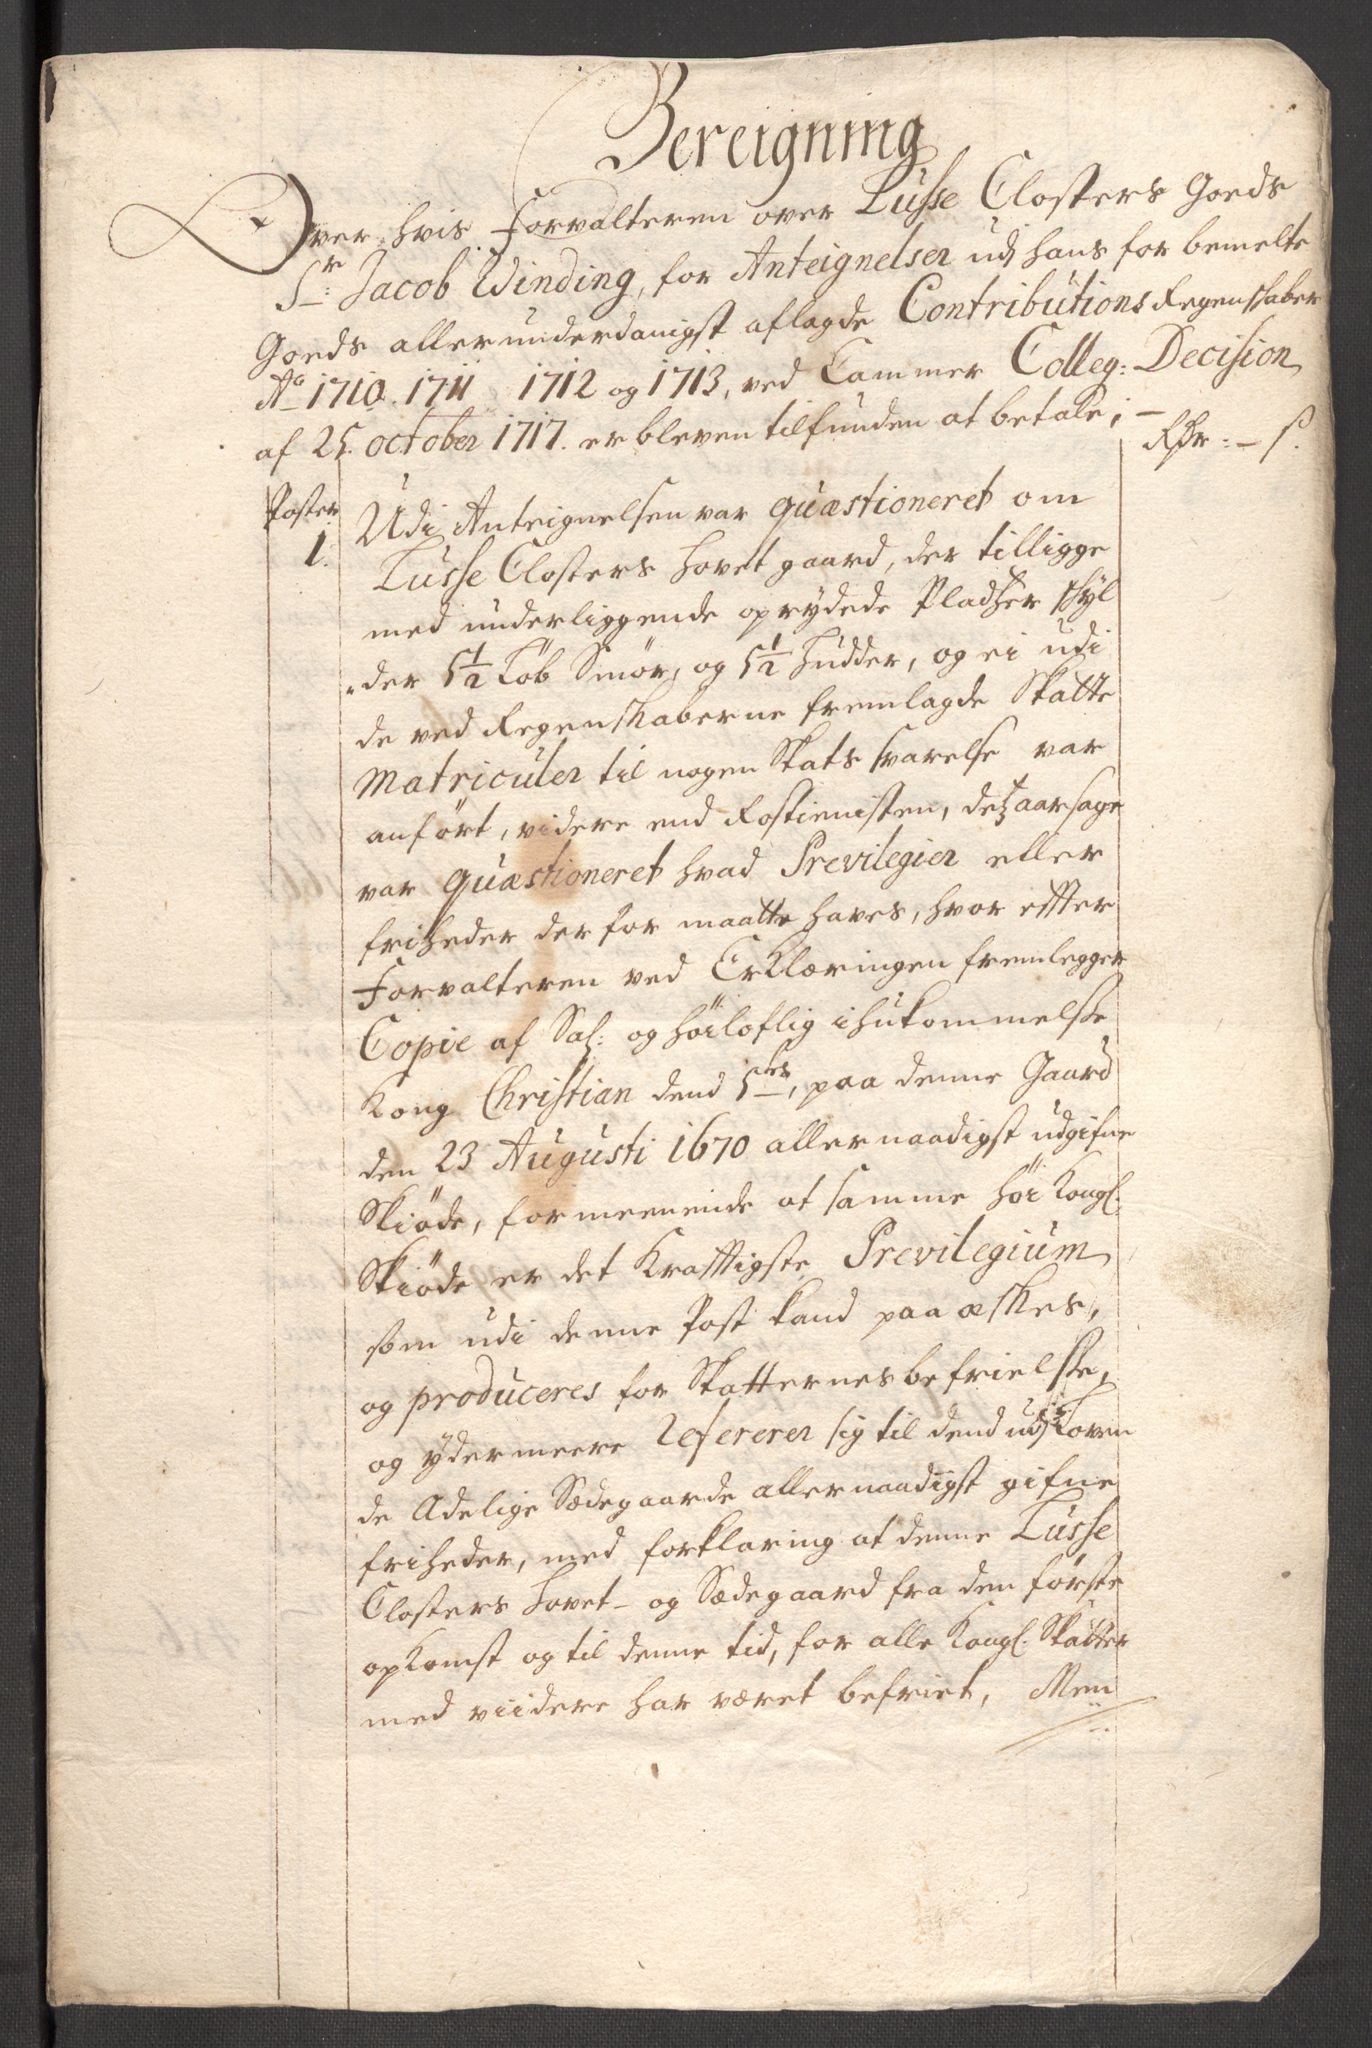 Bereigning
Over hvis Forvalteren over Lusse Closters Goeds
Sr: Jacob Winding, for Anteignelsen udj hans for bemelte
Goeds allerunderdanigst aflagde Contributions Regenskaber
Ao 1710. 1711 1712 og 1713, ved Cammer Colleg: Decision
af 25. october 1717. er bleven tilfunden at betale; –
Rdr: – s.
Poster
1. Udi Anteignelsen var quæstioneret om
Lusse Closters hovet gaard, der tilligge
med underliggende oprydede Pladzer skyl
der 5½ Løb Smør, og 5½ Hudder, og ei udi
de ved Regenskaberne fremlagde Skatte
Matriculer til nogen Skats svarelse var
anført, videre end Rostienisten, detz aarsage
var quæstioneret hvad Previlegier eller
friheder der for maatte haves, hvor effter
Forvalteren ved Erklæringen fremlegger
Copie af Sal: og høiloflig ihukommelse
Kong Christian dend 5tes, paa denne Gaard
den 23 Augusti 1670 allernaadigst udgifne
Skiøde, formeenende at samme høi Kongl.
Skiøde er det Krafftigste Previlegium
som udi denne Post kand paa æskes,
og produceres for Skatternes befrielse,
og ydermeere refererer sig til dend udj Loven
de Adelige Sædegaarde allernaadigst gifne
friheder, med forklaring at denne Lusse
Closters Hovet- og Sædegaard fra den første
opkomst og til denne tid, for alle Kongl. Skatter
med viidere har været befriet, Men